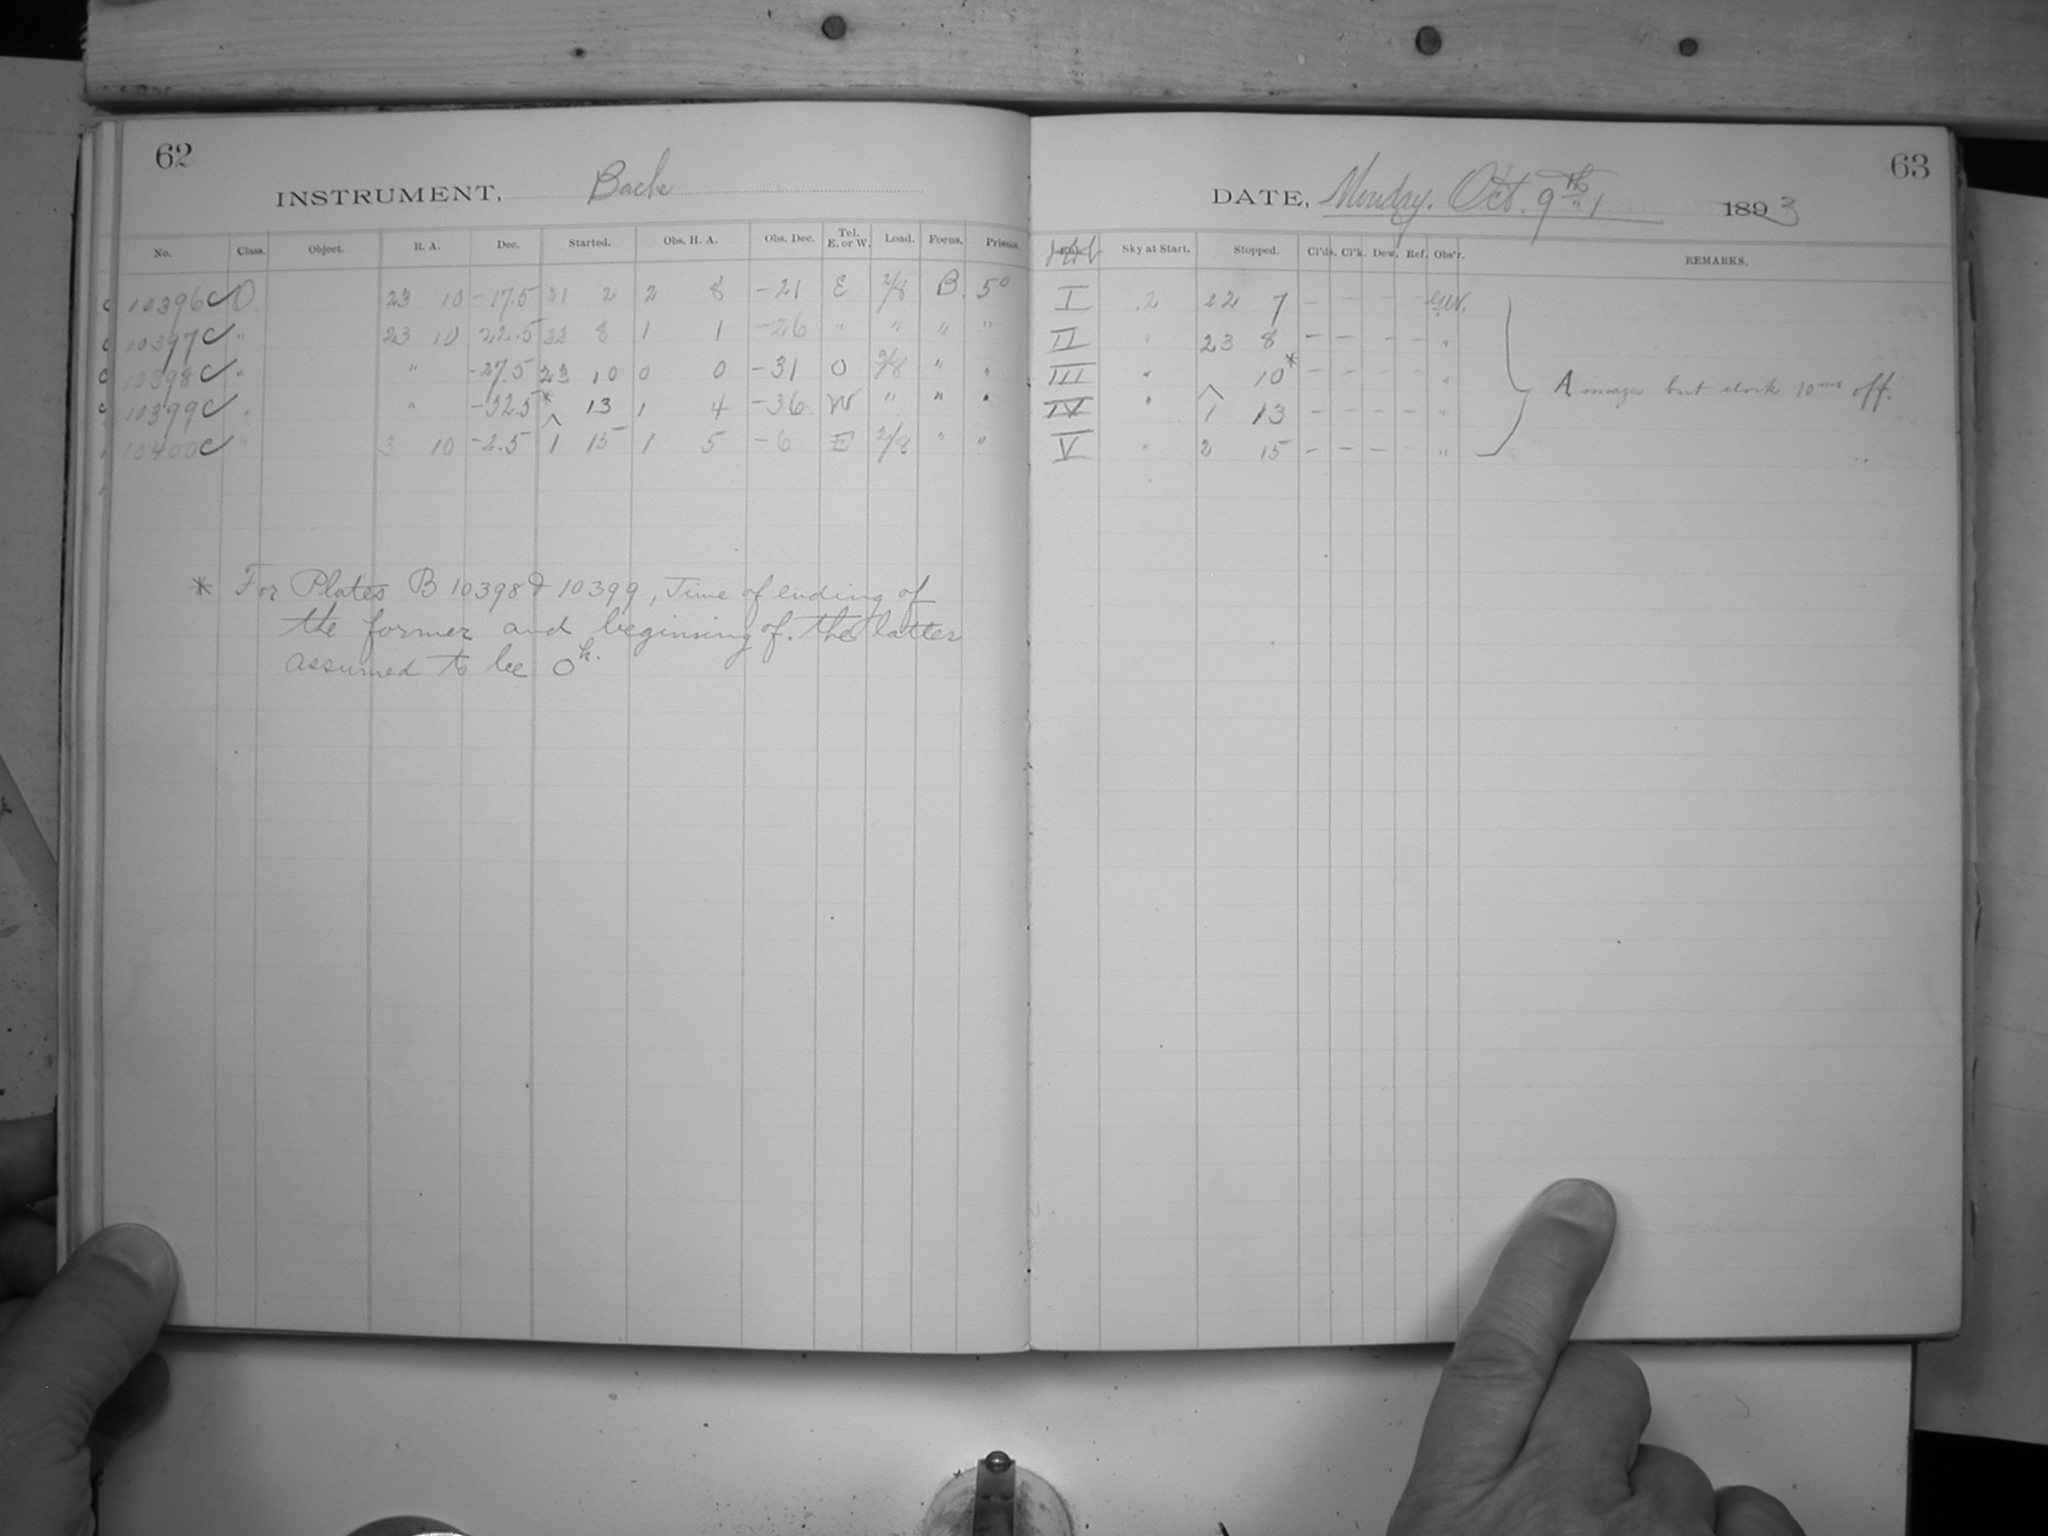 62
INSTRUMENT, Bache
No. Class. Object. R. A. Dec. Started. Obs. H. A. Obs. Dec. Tel. E. or W. Load. Focus. Prisms.
10396C O 23 10 -17.5 21 2 2 8 -21 E 2/8 B. 5°
10397C " 23 10 22.5 22 8 1 1 -26 " " " "
10398C " " -27.5 23 10 0 0 -31 O 2/8 " "
10399C " " -32.5 * 13 1 4 -36 W " " "
10400C " 3 10 -2.5 1 15 1 5 -6 E 2/8 " "
* For Plates B 10398 & 10399, Time of ending of
the former and beginning of the latter
assumed to be 0h.
63
DATE, Monday. Oct. 9th 1893
Sky at Start. Stopped. Cl'ds. Cl'k. Dew. Ref. Obs'r. REMARKS.
I 2 22 7 - - - -
II " 23 8 - - - - "
III " 10* - - - - "
A images but clock 10ms off.
IV " 1 13 - - - - "
V " 2 15 - - - - "